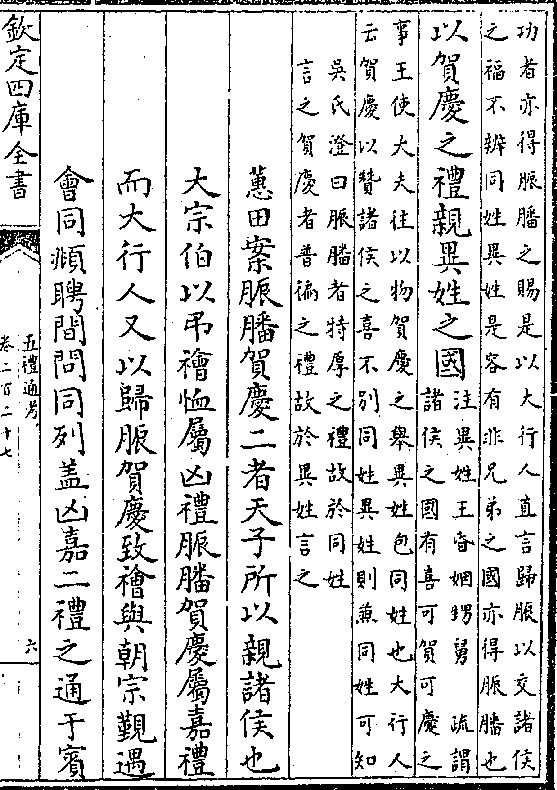 功者亦得脤膰之賜是以大行人直言歸脤以交諸侯
之福不辨同姓異姓是容有非兄弟之國亦得脤膰也
以賀慶之禮親異姓之國
注異姓王昏姻甥舅 疏謂
諸侯之國有喜可賀可慶之
事王使大夫往以物賀慶之舉異姓包同姓也大行人
云賀慶以贊諸侯之喜不别同姓異姓則兼同姓可知
吳氏澄曰脤膰者特厚之禮故於同姓
言之賀慶者普徧之禮故於異姓言之
蕙田案脤膰賀慶二者天子所以親諸侯也
大宗伯以弔禬恤屬凶禮脤膰賀慶屬嘉禮
而大行人又以歸脤賀慶致禬與朝宗覲遇
會同頫聘間問同列盖凶嘉二禮之通于賓
欽定四庫全書
五禮通考
卷二百二十七
六